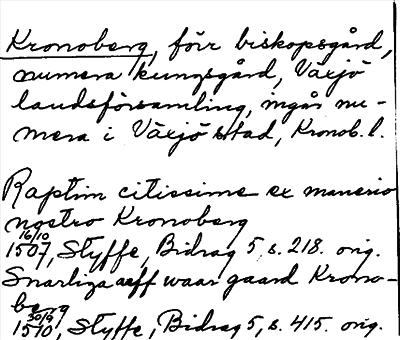 Kronoberg, förr biskopsgård,
numera kungsgård, Växjö
landsförsamling, ingår nu-
mera i Växjö stad, Kronob. l.
Raptim citissime ex manerio
nostro Kronoberg
16/10
1507, Styffe, Bidrag 5, s. 218. orig.
Snarliga aff waar gaard Krono-
berg
30/9
1510, Styffe, Bidrag 5, s. 415. orig.